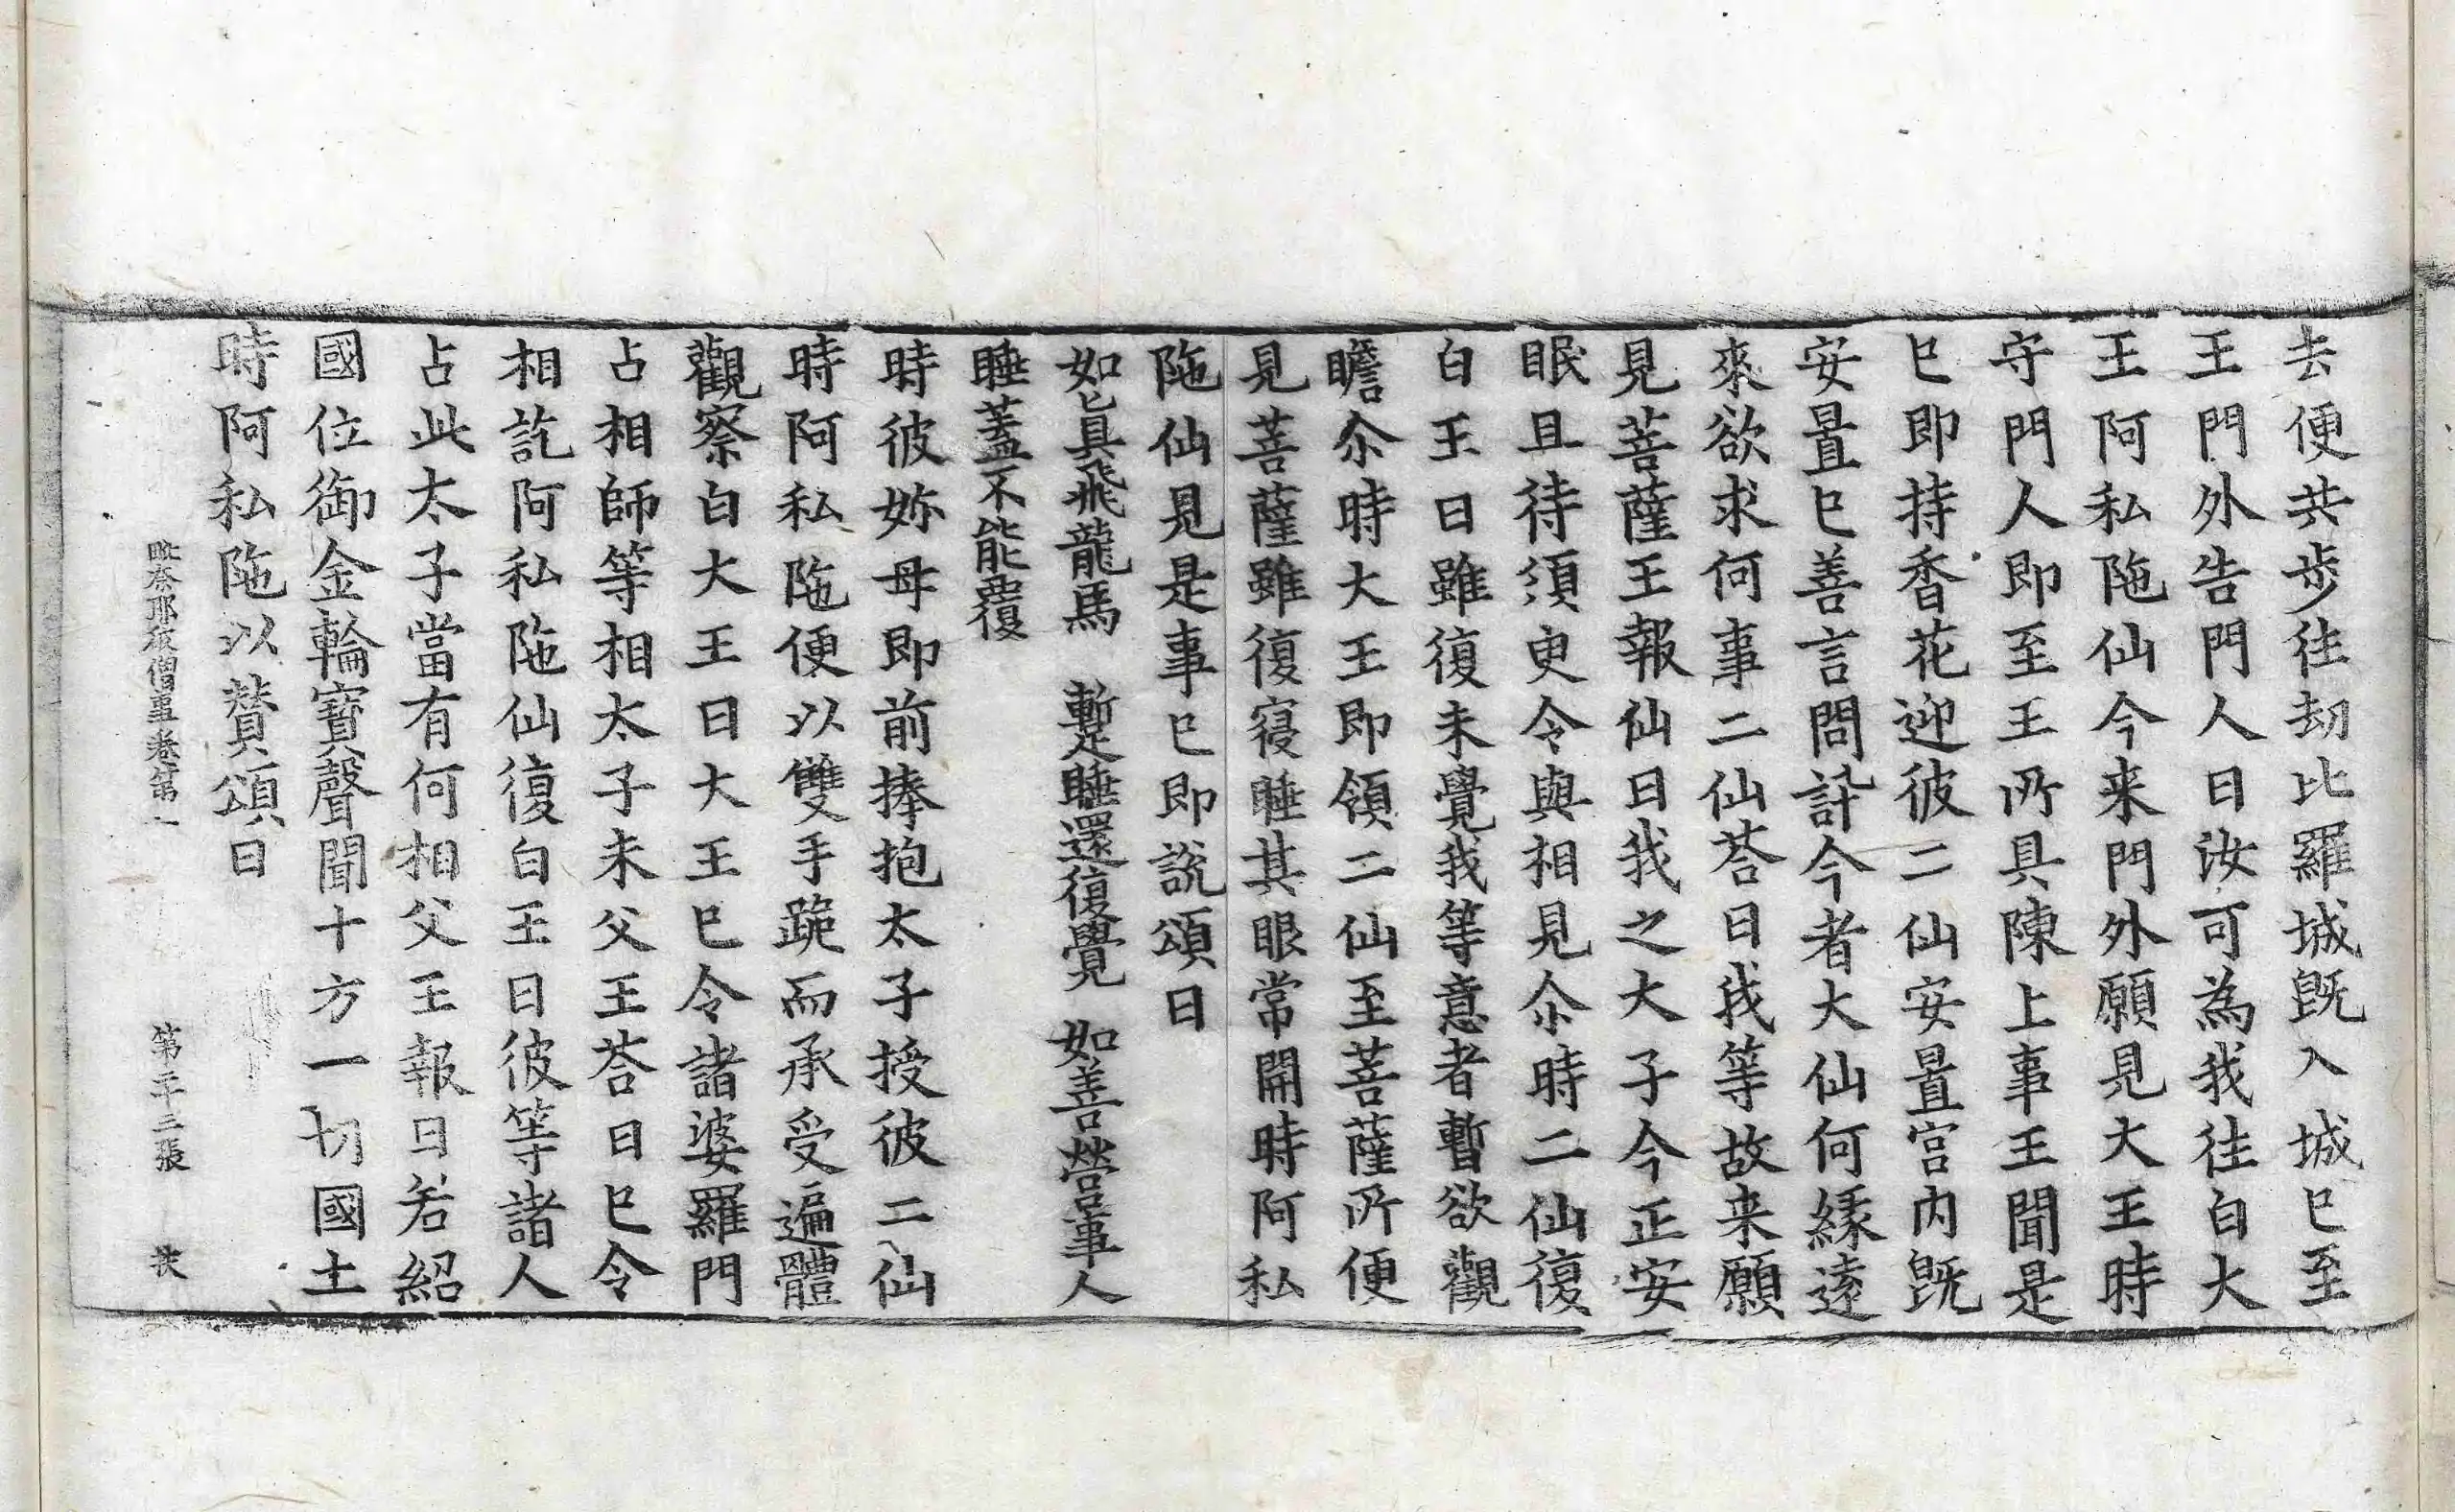 去便共步往劫比羅城旣入城已至
王門外告門人曰汝可為我往白大
王阿私陁仙今来門外願見大王時
守門人即至王所具陳上事王聞是
已即持香花迎彼二仙安置宫内旣
安置已善言問訐今者大仙何緣遠
來欲求何事二仙荅曰我等故来願
見菩薩王報仙曰我之大子今正安
眠且待須臾令與相見尒時二仙復
白王曰雖復未覺我等意者暫欲觀
瞻尒時大王即領二仙至菩薩所便
見菩薩雖復寢睡其眼常開時阿私
陁仙見是事已即說頌曰
如眞飛龍馬　蹔睡還復覺　如善營事人
睡蓋不能覆
時彼妳母即前捧抱太子授彼二仙
時阿私陁便以雙手跪而承受遍體
觀察白大王曰大王已令諸婆羅門
占相師等相太子未父王荅曰已令
相訖阿私陁仙復白王曰彼等諸人
占此太子當有何相父王報曰若紹
國位御金輪寶聲聞十方一切國土
時阿私陁以賛頌曰
毗奈耶破僧事卷第一　第二十三張　扶